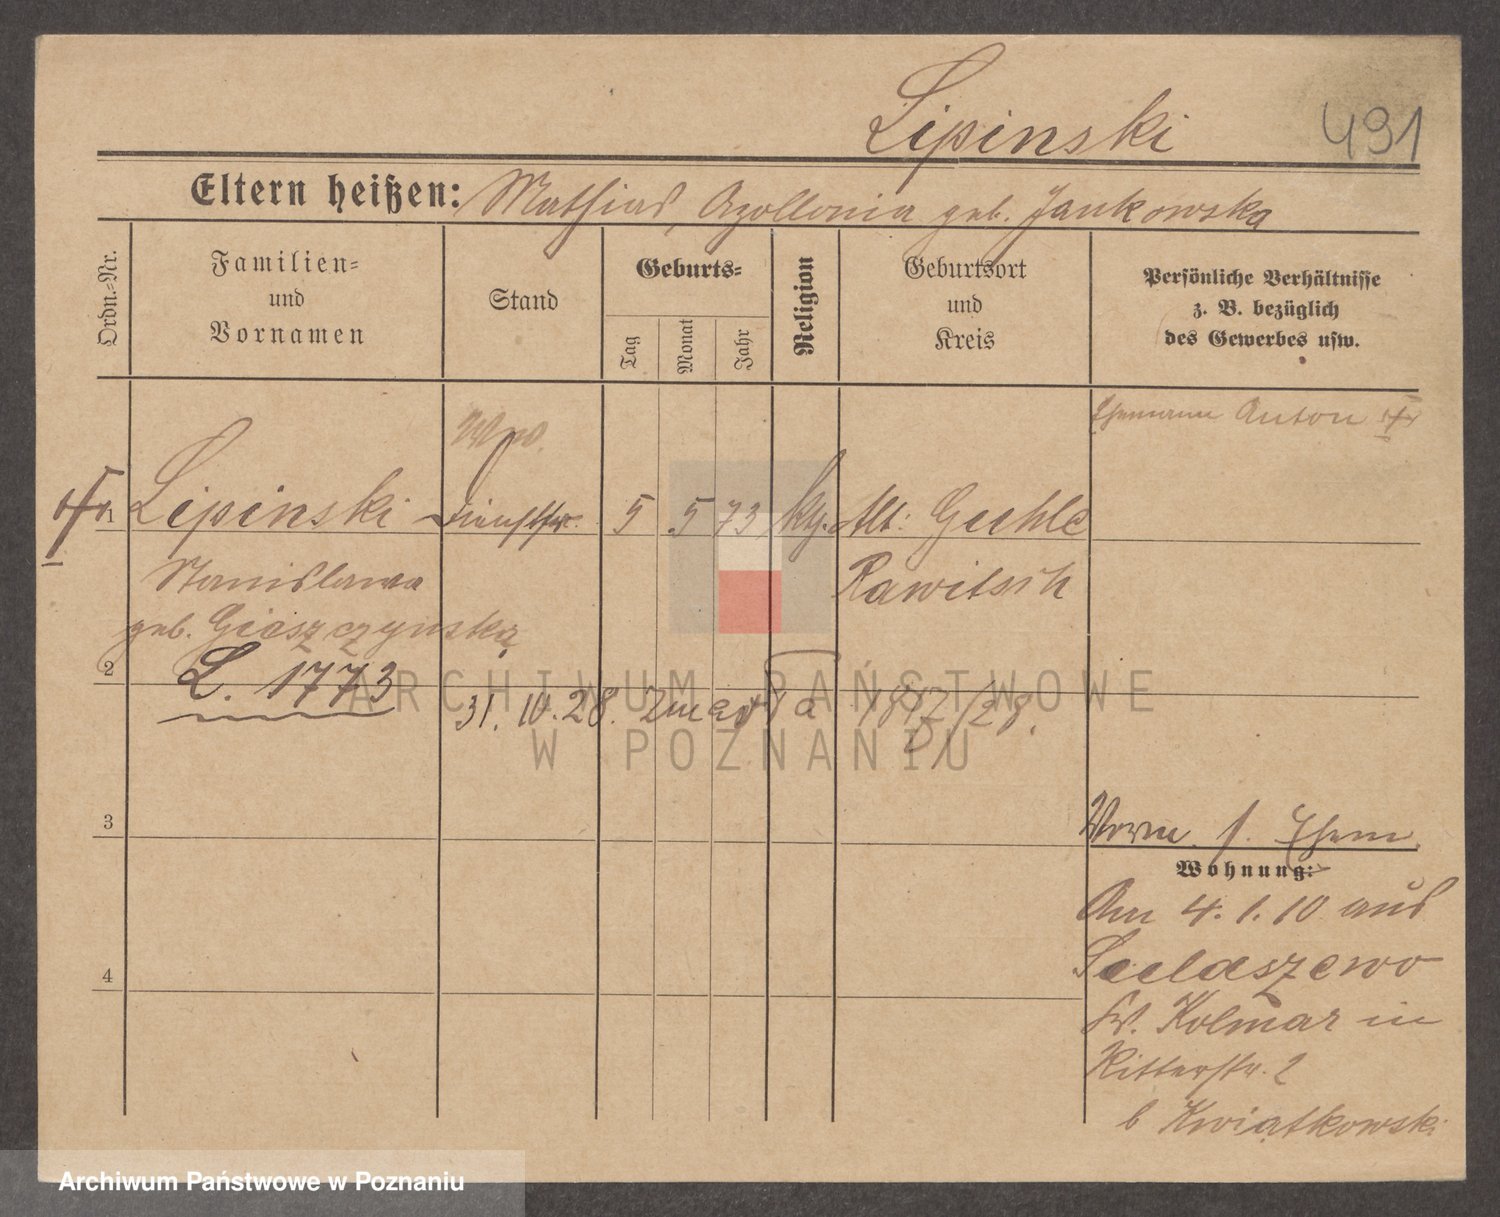 Lipinski
491
Eltern heißen: Mathias, Apollonia geb. Jankowska
Ordn.-Nr.
Familien-
und
Vornamen
Stand
Geburts-
Tag
Monat
Jahr
Religion
Geburtsort
und
Kreis
Persönliche Verhältnisse
z. B. bezüglich
des Gewerbes usw.
Ehemann Anton
Wwe.
1 Lipinski 5 5 73 kg. Alt: Guhle
Stanislawa Rawitsch
geb. Gieszczynska
2
L. 1773
31. 10. 28. Zmarła 1812/28.
3
Worm. s. Ehem.
Wohnung:
Am 4. 1. 10 aus
Sudaszewo
Kr. Kolmar in
Ritterstr. 2
b Kwiatkowski
4
ARCHIWUM PAŃSTWOWE
W POZNANIU
Archiwum Państwowe w Poznaniu